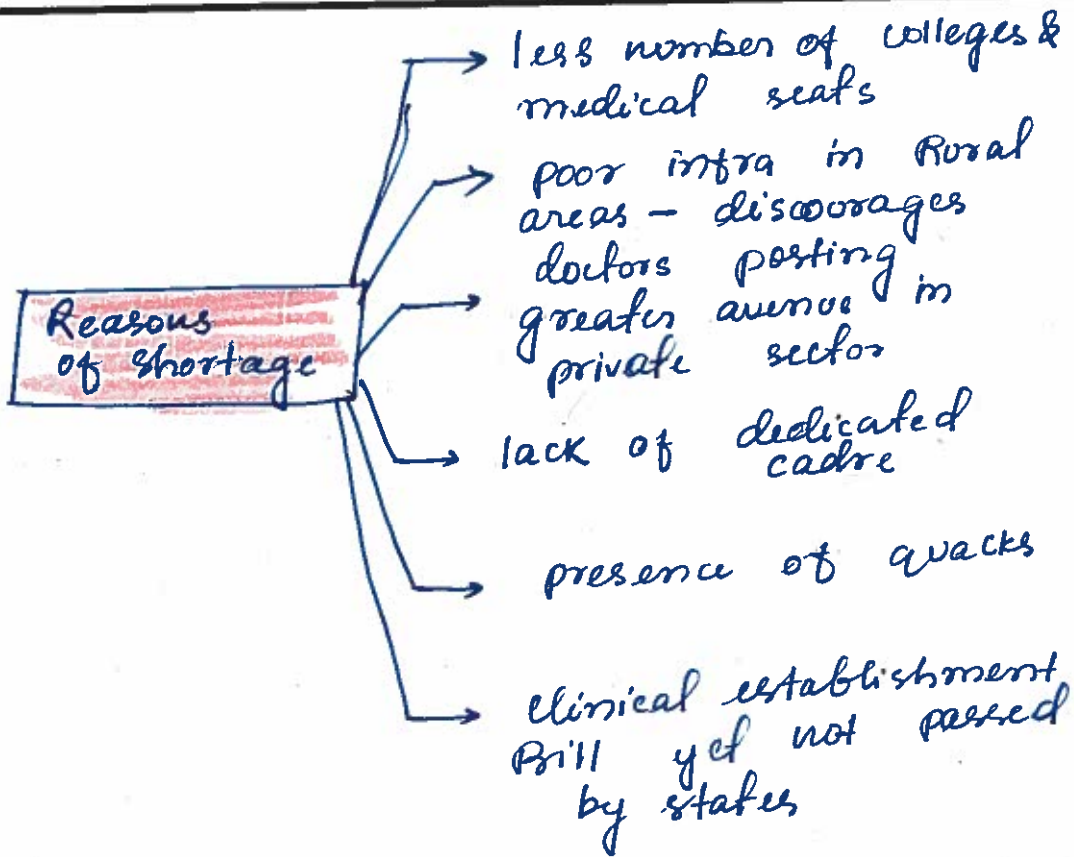 Reasons
of shortage
less number of colleges &
medical seats
poor infra in Rural
areas – discourages
doctors posting
greater avenue in
private sector
lack of dedicated
cadre
presence of quacks
clinical establishment
Bill yet not passed
by states